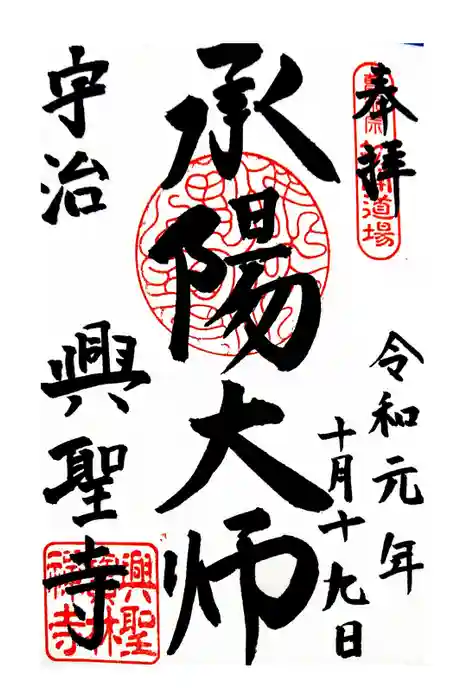 奉拝
道場
令和元年
十月十九日
承陽大师
宇治
興聖寺
興聖
禅寺